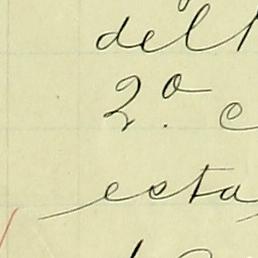 del
2.º c
esta